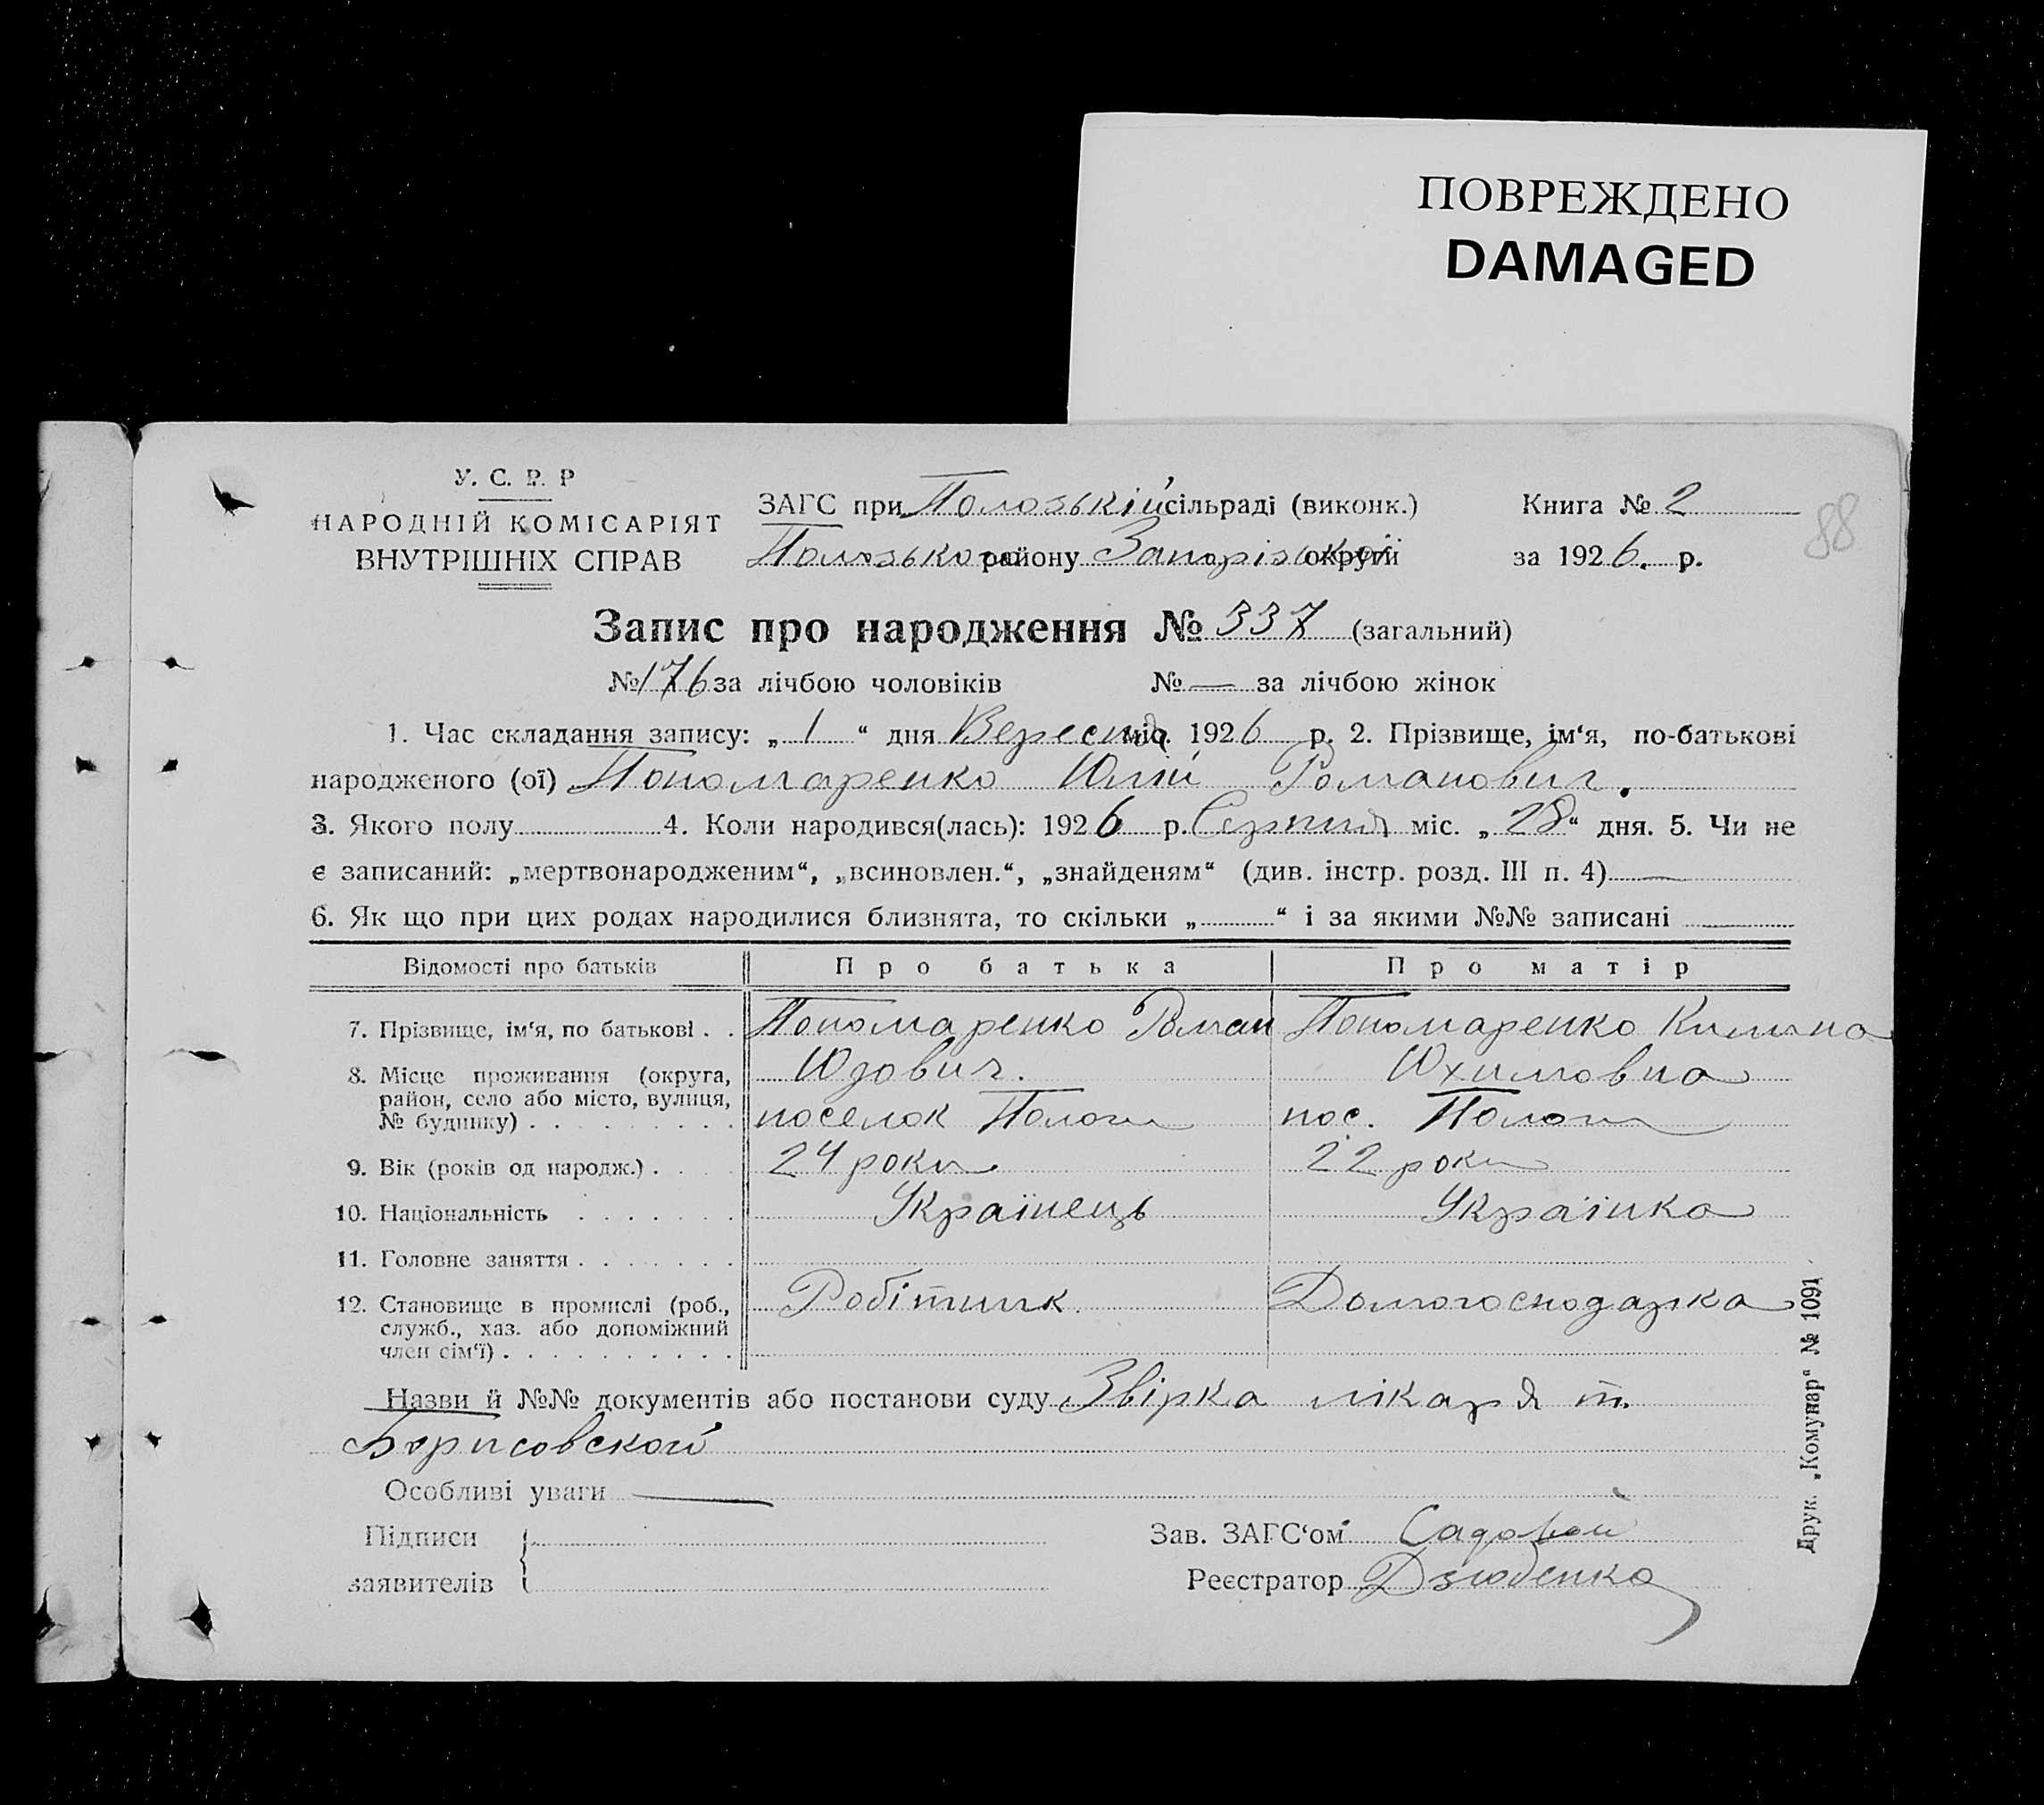 ПОВРЕЖДЕНО
DAMAGED
У. С. Р. Р
НАРОДНІЙ КОМІСАРІЯТ
ВНУТРІШНІХ СПРАВ
ЗАГС при Пологській сільраді (виконк.)
Пологського району Запорізької округи
Книга № 2
за 1926. р.
88
Запис про народження № 337 (загальний)
№ 176 за лічбою чоловіків № — за лічбою жінок
1. Час складання запису: „ 1 “ дня Вересня міс. 1926 р. 2. Прізвище, ім‘я, по-батькові
народженого (ої) Пономаренко Юлій Романович.
3. Якого полу 4. Коли народився(лась): 1926 р. Серпня міс. „ 28 “ дня. 5. Чи не
є записаний: „мертвонародженим“, „всиновлен.“, „знайденям“ (див. інстр. розд. III п. 4) —
6. Як що при цих родах народилися близнята, то скільки „ “ і за якими №№ записані
Відомості про батьків Про батька Про матір
7. Прізвище, ім‘я, по батькові . . Пономаренко Роман Пономаренко Килина
Юзович. Юхимовна
8. Місце проживання (округа, район, село або місто, вулиця, № будинку) . . . . . . . . . поселок Пологи пос. Пологи
9. Вік (років од народж.) . . . . 24 роки 22 роки
10. Національність . . . . . . . Українець Українка
11. Головне заняття . . . . . . .
12. Становище в промислі (роб., служб., хаз. або допоміжний член сім‘ї) . . . . . . . . . . Робітник Домогосподарка
Назви й №№ документів або постанови суду Звірка лікаря т.
Борисовской
Особливі уваги —
Підписи
заявителів
Зав. ЗАГС‘ом Садовой
Реєстратор Дзюбенко
Друк. „Комунар“ № 1091